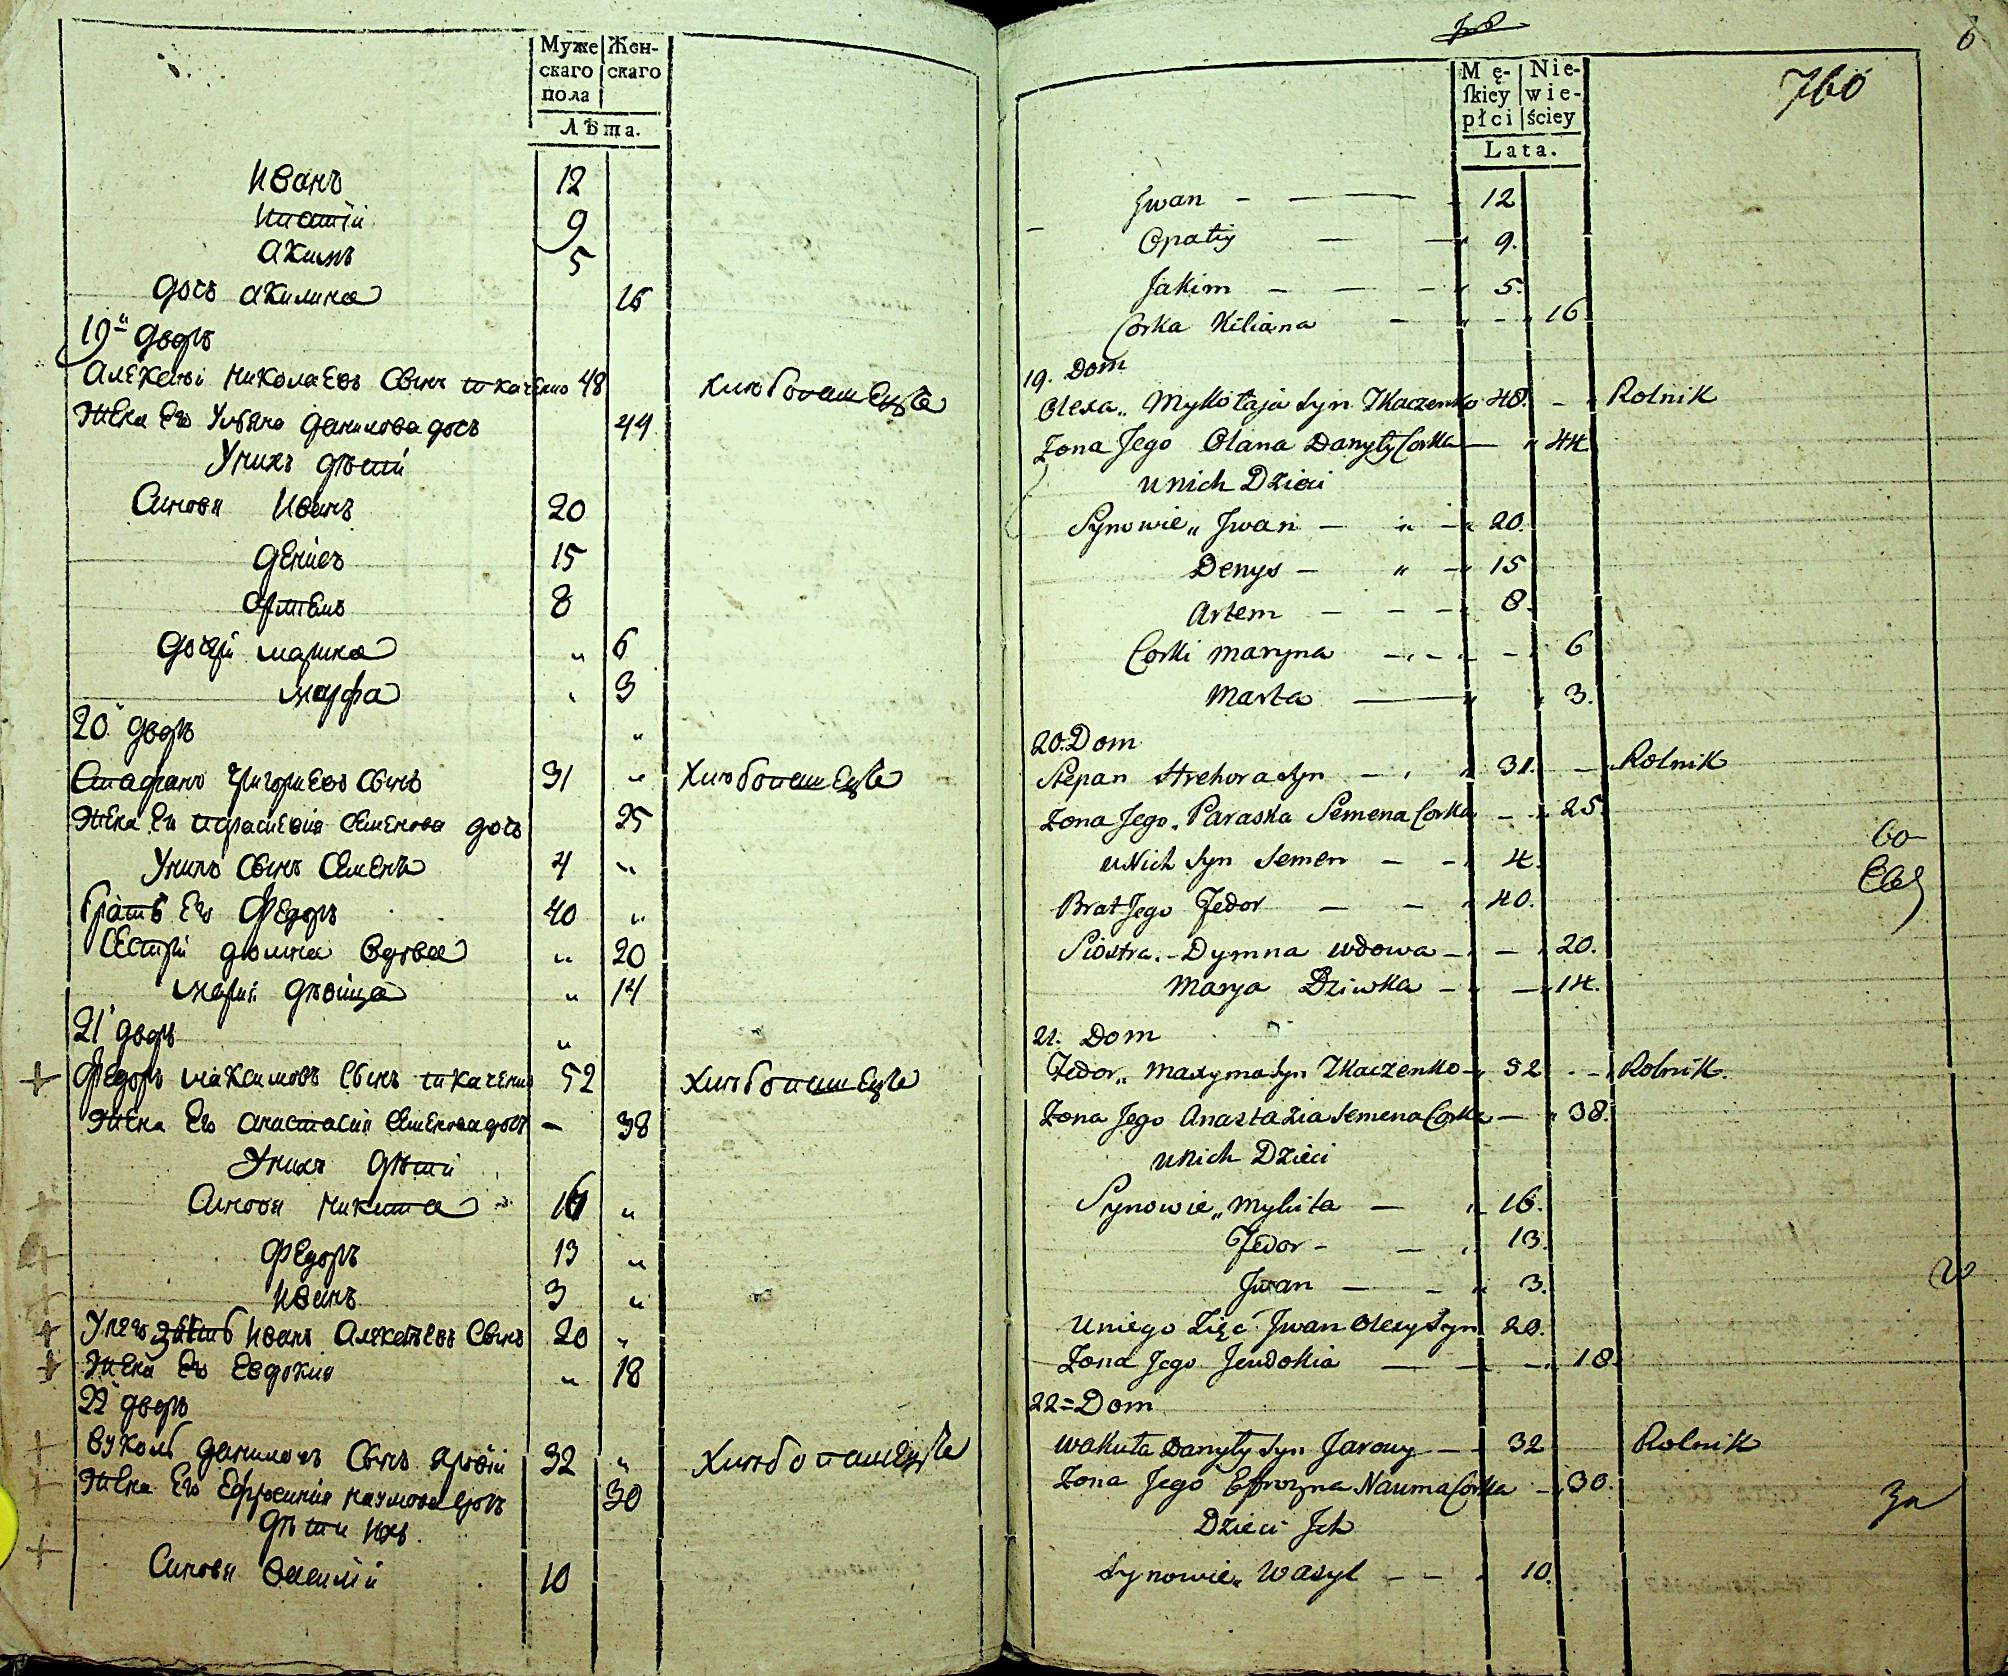 Муже Жен-
скаго скаго
пола
Лѣта.
Иванъ 12
Ипатій 9
Акимъ 5
дочь Акилина 16
19й дворъ
Алексѣй Николаевъ сынъ Ткаченко 48 Хлѣбопашецъ
Жена Его Ульяна Данилова дочь 44
У нихъ дѣти
Синовя Иванъ 20
Денисъ 15
Артемъ 8
дочери Марина „ 6
Марфа „ 3
20й дворъ „
Стефанъ Григориевъ сынъ 31 „ Хлѣбопашецъ
Жена Ег Параскевія Семенова дочь 25
У нихъ сынъ Семенъ 4 „
братъ Его Федоръ 40 „
Сестри Домна вдова „ 20
Мария дѣвица „ 14
21й дворъ „
Федоръ Максимовъ сынъ Ткаченко 52 Хлѣбопашецъ
Жена Его Анастасия Семенова дочь — 38
У нихъ дѣти
Синовя Никита 16 „
Федоръ 13 „
Иванъ 3 „
У него зять Иванъ Алексѣевъ сынъ 20 „
Жена Его Евдокия „ 18
22й дворъ
Вуколъ Даниловъ сынъ Яровій 32 „ Хлѣбопашецъ
Жена Его Ефросиния Наумова дочь 30
Дѣти ихъ.
Синовя Василій 10
6
760
Mę- Nie-
ſkiey wie-
płci ściey
Lata.
Jwan — 12
Opatiy — 9.
Jakim — 5.
Corka Kiliana — 16
19. Dom
Olexa „ Mykołaja Syn Tkaczenko 48. — Rolnik
Zona Jego Olana Danyły Corka — 44
u nich Dzieci
Synowie „ Jwan — 20.
Denys — 15
Artem — 8.
Corki Maryna — 6
Marta — 3.
20. Dom
Stepan Hrehora Syn — 31. — Rolnik
Zona Jego. Paraska Semena Corka — 25.
u Nich Syn Semen — 4.
Brat Jego Fedor — 40.
Siostra. — Dymna wdowa — 20.
Marya Dziwka — 14.
21. Dom
Fedor „ Maxyma Syn Tkaczenko — 52 — Rolnik.
Zona Jego Anastazia Semena Corka — 38.
u Nich Dzieci
Synowie „ Mykita — 16.
Fedor — 13.
Jwan — 3.
u niego Zięć Jwan Olexy Syn 20.
Zona Jego Jewdokia — 18.
22 = Dom
Wakuła Danyły Syn Jarowy — 32 Rolnik
Zona Jego Efrozyna Nauma Corka — 30.
Dzieci Jch
Synowie „ Wasyl — 10.